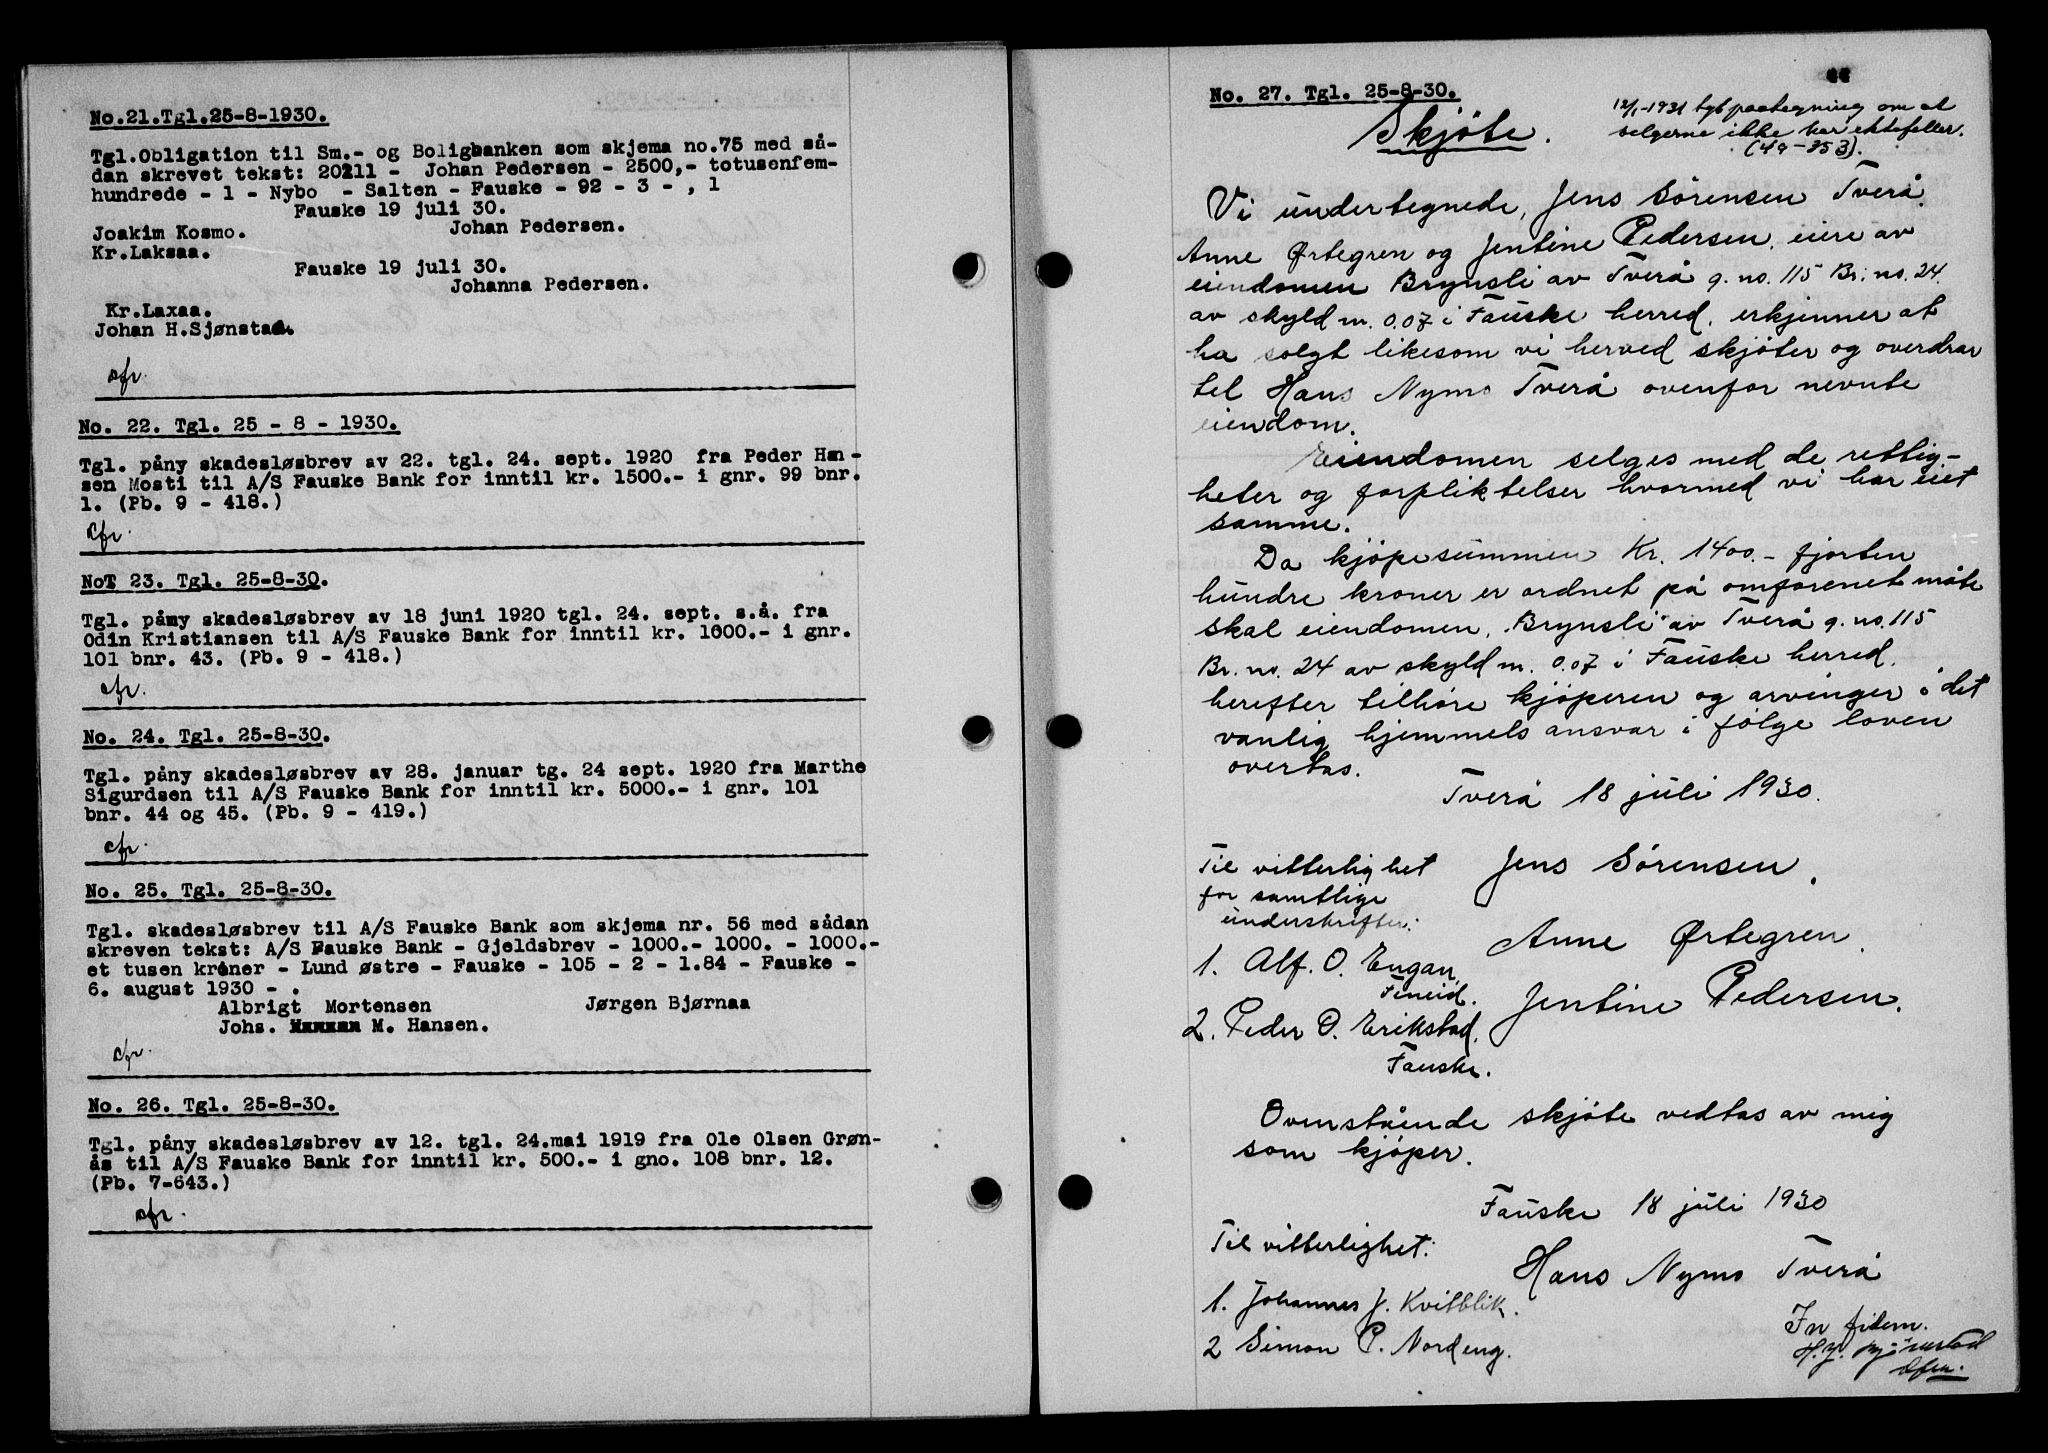 No.21.Tgl.25-8-1930.
Tgl.Obligation til Sm.- og Boligbanken som skjema no.75 med så-
dan skrevet tekst: 20211 - Johan Pedersen - 2500,- totusenfem-
hundrede - 1 - Nybo - Salten - Fauske - 92 - 3 - , 1
Fauske 19 juli 30.
Joakim Kosmo. Johan Pedersen.
Kr.Laksaa.
Fauske 19 juli 30.
Johanna Pedersen.
Kr.Laxaa.
Johan H.Sjønstad.
cfr.
No. 22. Tgl. 25 - 8 - 1930.
Tgl. påny skadesløsbrev av 22. tgl. 24. sept. 1920 fra Peder Han-
sen Mosti til A/S Fauske Bank for inntil kr. 1500.- i gnr. 99 bnr.
1. (Pb. 9 - 418.)
cfr.
NoT 23. Tgl. 25-8-30.
Tgl. påny skadesløsbrev av 18 juni 1920 tgl. 24. sept. s.å. fra
Odin Kristiansen til A/S Fauske Bank for inntil kr. 1000.- i gnr.
101 bnr. 43. (Pb. 9 - 418.)
cfr.
No. 24. Tgl. 25-8-30.
Tgl. påny skadesløsbrev av 28. januar tg. 24 sept. 1920 fra Marthe
Sigurdsen til A/S Fauske Bank for inntil kr. 5000.- i gnr. 101
bnr. 44 og 45. (Pb. 9 - 419.)
cfr.
No. 25. Tgl. 25-8-30.
Tgl. skadesløsbrev til A/S Fauske Bank som skjema nr. 56 med sådan
skreven tekst: A/S Fauske Bank - Gjeldsbrev - 1000.- 1000. - 1000.-
et tusen kroner - Lund østre - Fauske - 105 - 2 - 1.84 - Fauske -
6. august 1930 - .
Albrigt Mortensen Jørgen Bjørnaa
Johs. M. Hansen.
cfr.
No. 26. Tgl. 25-8-30.
Tgl. påny skadesløsbrev av 12. tgl. 24.mai 1919 fra Ole Olsen Grøn-
ås til A/S Fauske Bank for inntil kr. 500.- i gno. 108 bnr. 12.
(Pb. 7-643.)
cfr.
44
No. 27. Tgl. 25-8-30.
Skjøte.
12/1-1931 tgl paategning om at
selgerne ikke har ektefeller.
(49-353).
Vi undertegnede, Jens Sørensen Tverå,
Anne Ørtegren og Jentine Pedersen, eiere av
eiendomen Brynsli av Tverå g. no. 115 Br. no. 24.
av skyld m. 0.07 i Fauske herred, erkjenner at
ha solgt likesom vi herved skjøter og overdrar
til Hans Nymo Tverå ovenfor nevnte
eiendom.
Eiendomen selges med de rettig-
heter og forpliktelser hvormed vi har eiet
samme.
Da kjøpesummen Kr. 1400.- fjorten
hundre kroner er ordnet på omforenet måte
skal eiendomen, Brynsli av Tverå g. no. 115
Br. no. 24 av skyld m. 0.07 i Fauske herred.
herefter tilhøre kjøperen og arvinger i det
vanlig hjemmels ansvar i følge loven
overtas.
Tverå 18 juli 1930.
Til vitterlighet Jens Sørensen.
for samtlige
underskrifter:
Anne Ørtegren.
1. Alf. O. Engan
Fineid.
Jentine Pedersen.
2. Peder O. Erikstad,
Fauske.
Ovenstående skjøte vedtas av mig
som kjøper.
Fauske 18 juli 1930
Til vitterlighet:
Hans Nymo Tverå
1. Johannes J. Kvitblik.
2 Simon P. Nordeng.
In fidem.